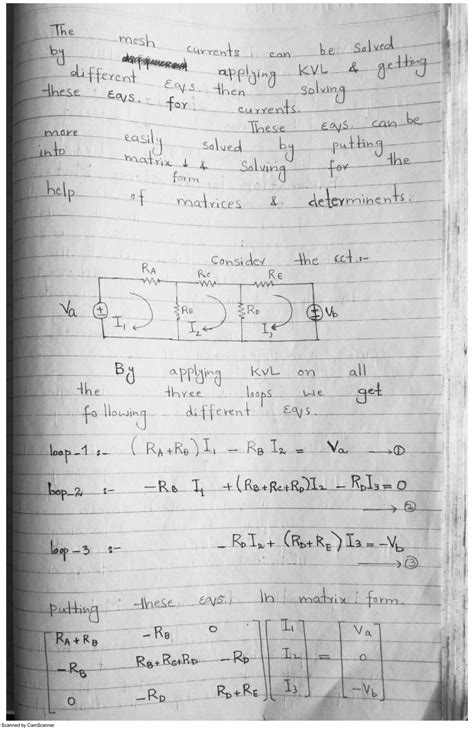 The mesh currents can be Solved
by applying KVL & getting
different Eqs. then solving
these Eqs. for currents.
These Eqs. can be
more easily solved by putting
into matrix ↓ & Solving for the
form
help of matrices & determinents.
Consider the cct:-
RA RC RE
Va RB RD Vb
I1 I2 I3
By applying KVL on all
the three loops we get
following different Eqs.
loop-1 :- (RA+RB)I1 - RB I2 = Va → ①
loop-2 :- -RB I1 +(RB+RC+RD)I2 - RDI3=0
→ ②
loop-3 :- - RDI2+ (RD+RE)I3=-Vb
→ ③
putting these Eqs. In matrix form.
RA+RB -RB 0 I1 Va
-RB RB+RC+RD -RD I2 = 0
0 -RD RD+RE I3 -Vb
Scanned by CamScanner